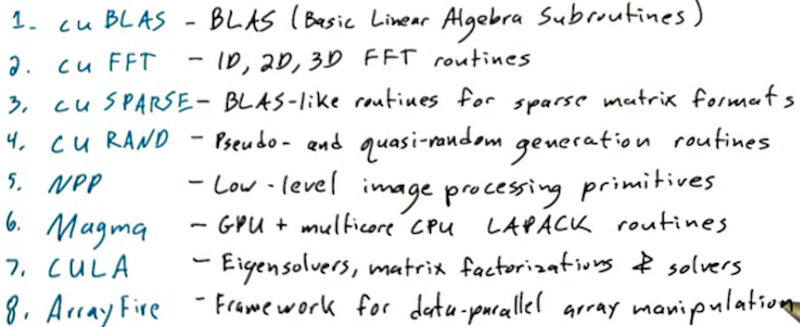 1. cuBLAS - BLAS (Basic Linear Algebra Subroutines)
2. cuFFT - 1D, 2D, 3D FFT routines
3. cuSPARSE - BLAS-like routines for sparse matrix formats
4. cuRAND - Pseudo- and quasi-random generation routines
5. NPP - Low-level image processing primitives
6. Magma - GPU + multicore CPU LAPACK routines
7. CULA - Eigensolvers, matrix factorizations & solvers
8. ArrayFire - Framework for data-parallel array manipulation